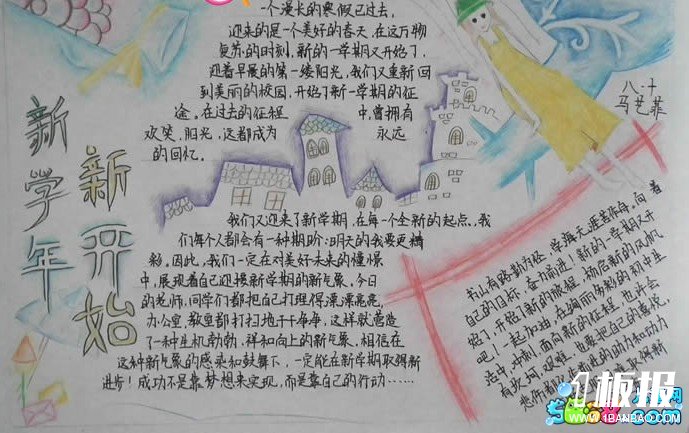 新学年
新开始
一个漫长的寒假已过去,
迎来的是一个美好的春天,在这万物
复苏的时刻,新的一学期又开始了,
迎着早晨的第一缕阳光,我们又重新回
到美丽的校园,开始了新一学期的征
途,在过去的征程中,曾拥有
欢笑、阳光,这都成为永远
的回忆。
我们又迎来了新学期,在每一个全新的起点,我
们每个人都会有一种期盼:明天的我要更精
彩,因此,我们一定在对美好未来的憧憬
中,展现着自己迎接新学期的新气象,今日
的老师,同学们都把自己打理得漂漂亮亮,
办公室,教室都打扫地干干净净,这样就营造
了一种生机勃勃,祥和向上的新气象,相信在
这种新气象的感染和鼓舞下,一定能在新学期取得新
进步!成功不是靠梦想来实现,而是靠自己的行动……
八.十
马艺菲
书山有路勤为径,学海无涯苦作舟,向着
自己的目标,奋力前进,新的一学期又开
始了,开始了新的旅程,扬起新的风帆
吧!一起加油,在绚丽多彩的初中生
活中,冲刺,面向新的征程,也许会
有坎坷,艰难,也要把自己的喜悦,
悲伤都化为前进的动力和动力
取得新
1板报
WWW.1BANBAO.COM